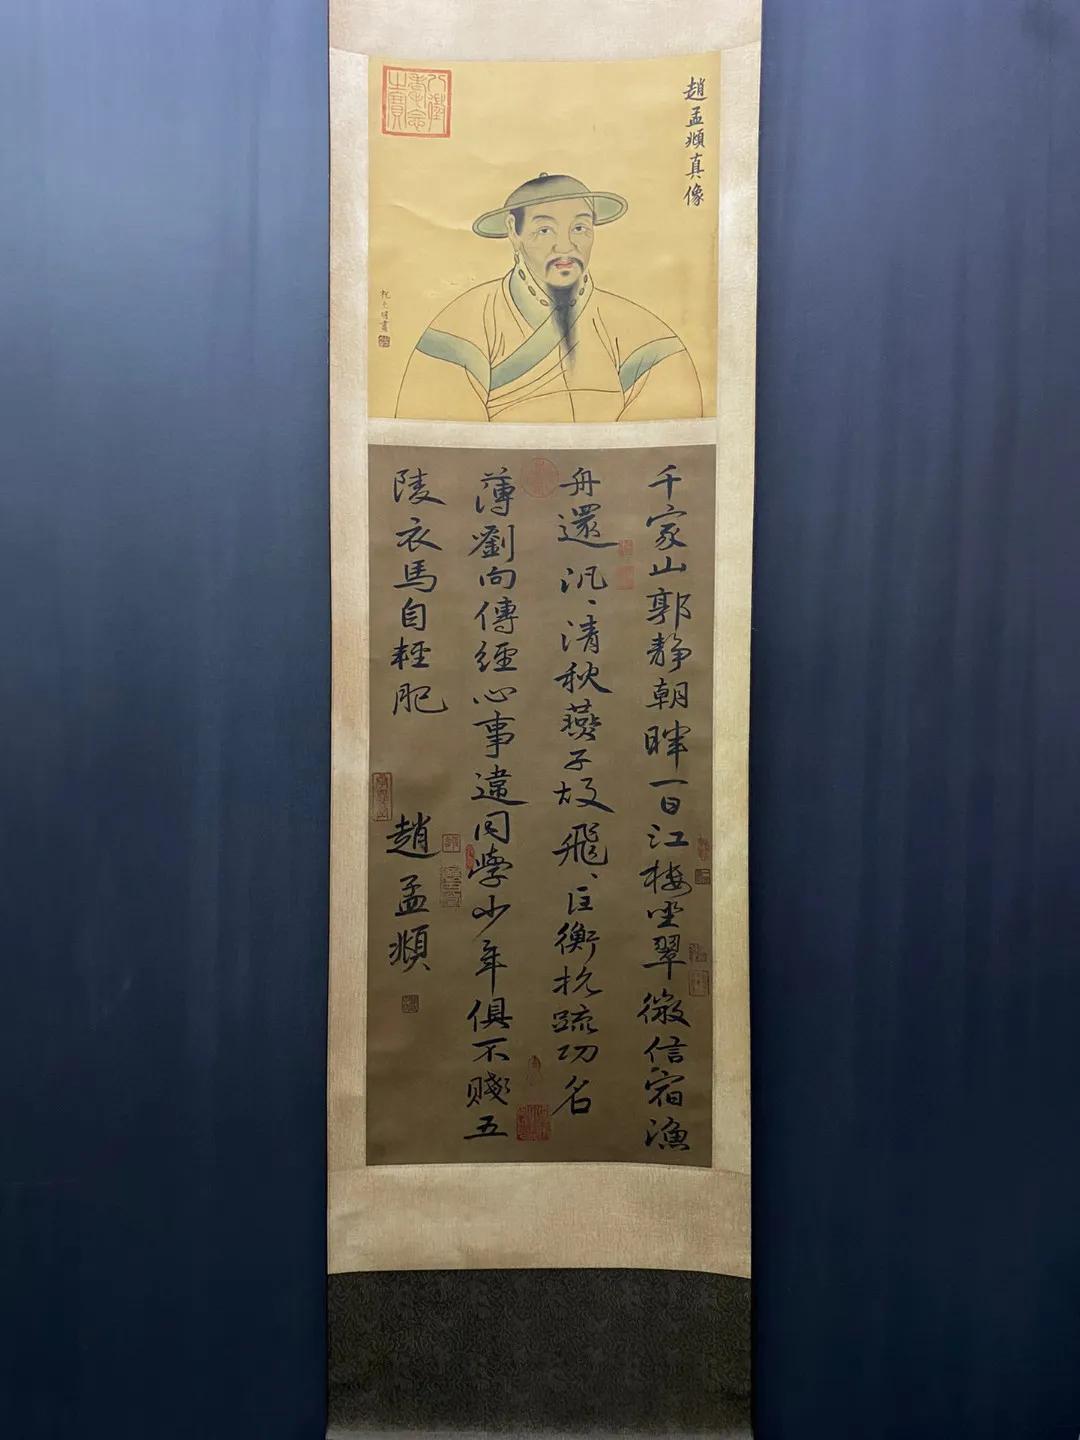 趙孟頫真像
千家山郭静朝暉一日江楼坐翠微信宿漁
舟還汎〻清秋燕子故飛〻匡衡抗疏功名
薄劉向傳經心事違同學少年俱不賤五
陵衣馬自輕肥
趙孟頫